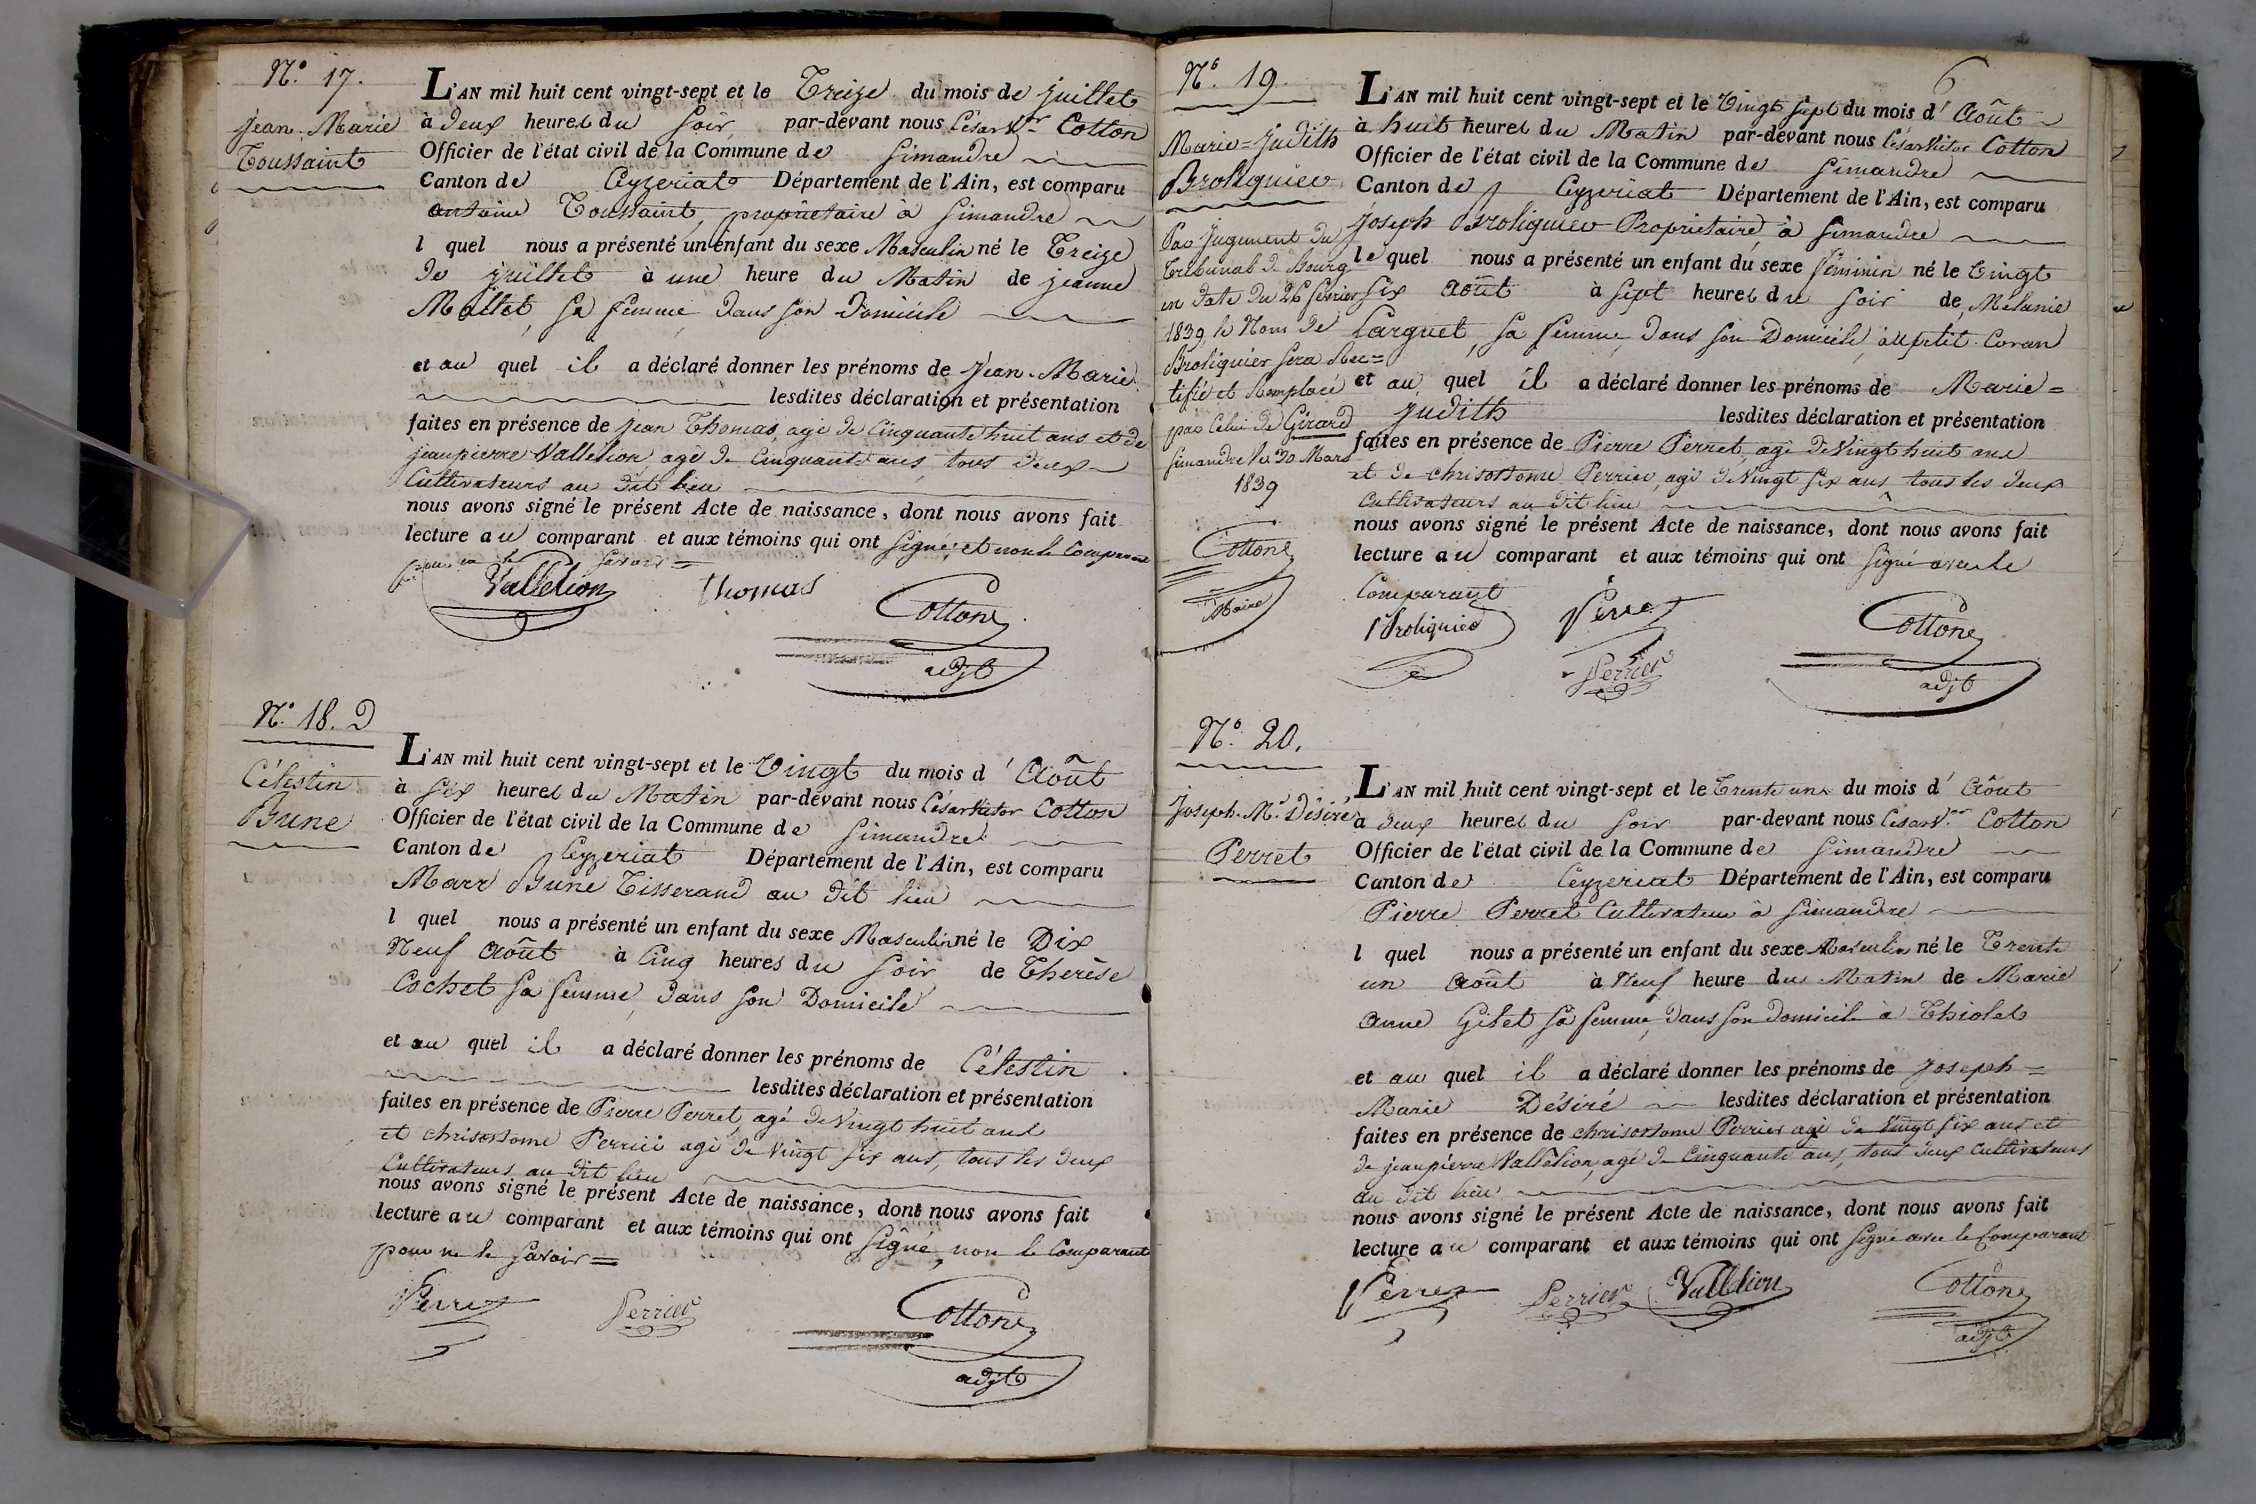 N.° 17.
Jean-Marie
Toussaint
L'AN mil huit cent vingt-sept et le Treize du mois de Juillet
à deux heures du soir, par-devant nous César V.or Cotton
Officier de l'état civil de la Commune de Simandre
Canton de Ceyzeriat Département de l'Ain, est comparu
antoine Toussaint, propriétaire à Simandre
l quel nous a présenté un enfant du sexe Masculin né le Treize
de juillet à une heure du Matin de jeanne
Mollet, sa femme, dans son Domicile
et au quel il a déclaré donner les prénoms de Jean-Marie
lesdites déclaration et présentation
faites en présence de jean Thomas, agé de Cinquante huit ans et de
jeanpierre Vallelion, agé de Cinquante ans, tous deux
Cultivateurs au dit lieu
nous avons signé le présent Acte de naissance, dont nous avons fait
lecture au comparant et aux témoins qui ont signé, et non le Comparant
pour ne le savoir =
Vallelion Thomas Cotton
adjt
N.° 18. D
Célestin
Bune
L'AN mil huit cent vingt-sept et le Vingt du mois d' Août
à Six heures du Matin par-devant nous César Victor Cotton
Officier de l'état civil de la Commune de Simandre
Canton de Ceyzeriat Département de l'Ain, est comparu
Marc Bune Tisserand au dit lieu
l quel nous a présenté un enfant du sexe Masculin né le Dix
Neuf Août à Cinq heures du Soir de Therèse
Cochet sa femme, dans son Domicile
et au quel il a déclaré donner les prénoms de Célestin
lesdites déclaration et présentation
faites en présence de Pierre Perret, agé de Vingt huit ans
et chrisostome Perrier agé de Vingt six ans, tous les deux
Cultivateurs au dit lieu
nous avons signé le présent Acte de naissance, dont nous avons fait
lecture au comparant et aux témoins qui ont Signé, non le Comparant
pour ne le savoir =
Perret Perrier Cotton
adjt
6
N.° 19.
Marie=Judith
Broliquier
Par Jugement du
Tribunal de Bourg
en date du 26 fevrier
1839, le Nom de
Broliquier sera Rec=
tifié et Remplacé
par Celui de Girard
Simandre le 30 Mars
1839
Cotton
Maire
L'AN mil huit cent vingt-sept et le Vingt Sept du mois d' Août
à huit heures du Matin par-devant nous César Victor Cotton
Officier de l'état civil de la Commune de Simandre
Canton de Ceyzeriat Département de l'Ain, est comparu
Joseph Broliquier Propriétaire à Simandre
le quel nous a présenté un enfant du sexe féminin né le Vingt
six Août à Sept heures du soir de Mélanie
Carguet, sa femme, dans son Domicile, au petit-Coran
et au quel il a déclaré donner les prénoms de Marie=
Judith lesdites déclaration et présentation
faites en présence de Pierre Perret, agé de Vingt huit ans
et de chrisostome Perrier, agé de Vingt six ans tous les deux
Cultivateurs au dit lieu
nous avons signé le présent Acte de naissance, dont nous avons fait
lecture au comparant et aux témoins qui ont signé avec le
Comparant
Broliquier Perret Cotton
Perrier adjt
N.° 20.
Joseph-M.e Désiré
Perret
L'AN mil huit cent vingt-sept et le Trente un du mois d' Août
à deux heures du soir par-devant nous César V.or Cotton
Officier de l'état civil de la Commune de Simandre
Canton de Ceyzeriat Département de l'Ain, est comparu
Pierre Perret Cultivateur à Simandre
l quel nous a présenté un enfant du sexe Masculin né le Trente
un Août à Neuf heure du Matin de Marie
Anne Gilet sa femme, dans son domicile à Thiolet
et au quel il a déclaré donner les prénoms de Joseph=
Marie Désiré lesdites déclaration et présentation
faites en présence de chrisostome Perrier agé de Vingt six ans et
de jeanpierre Vallelion, agé de Cinquante ans, tous deux Cultivateurs
au dit lieu
nous avons signé le présent Acte de naissance, dont nous avons fait
lecture au comparant et aux témoins qui ont signé avec le Comparant
Perret Perrier Vallelion Cotton
adjt